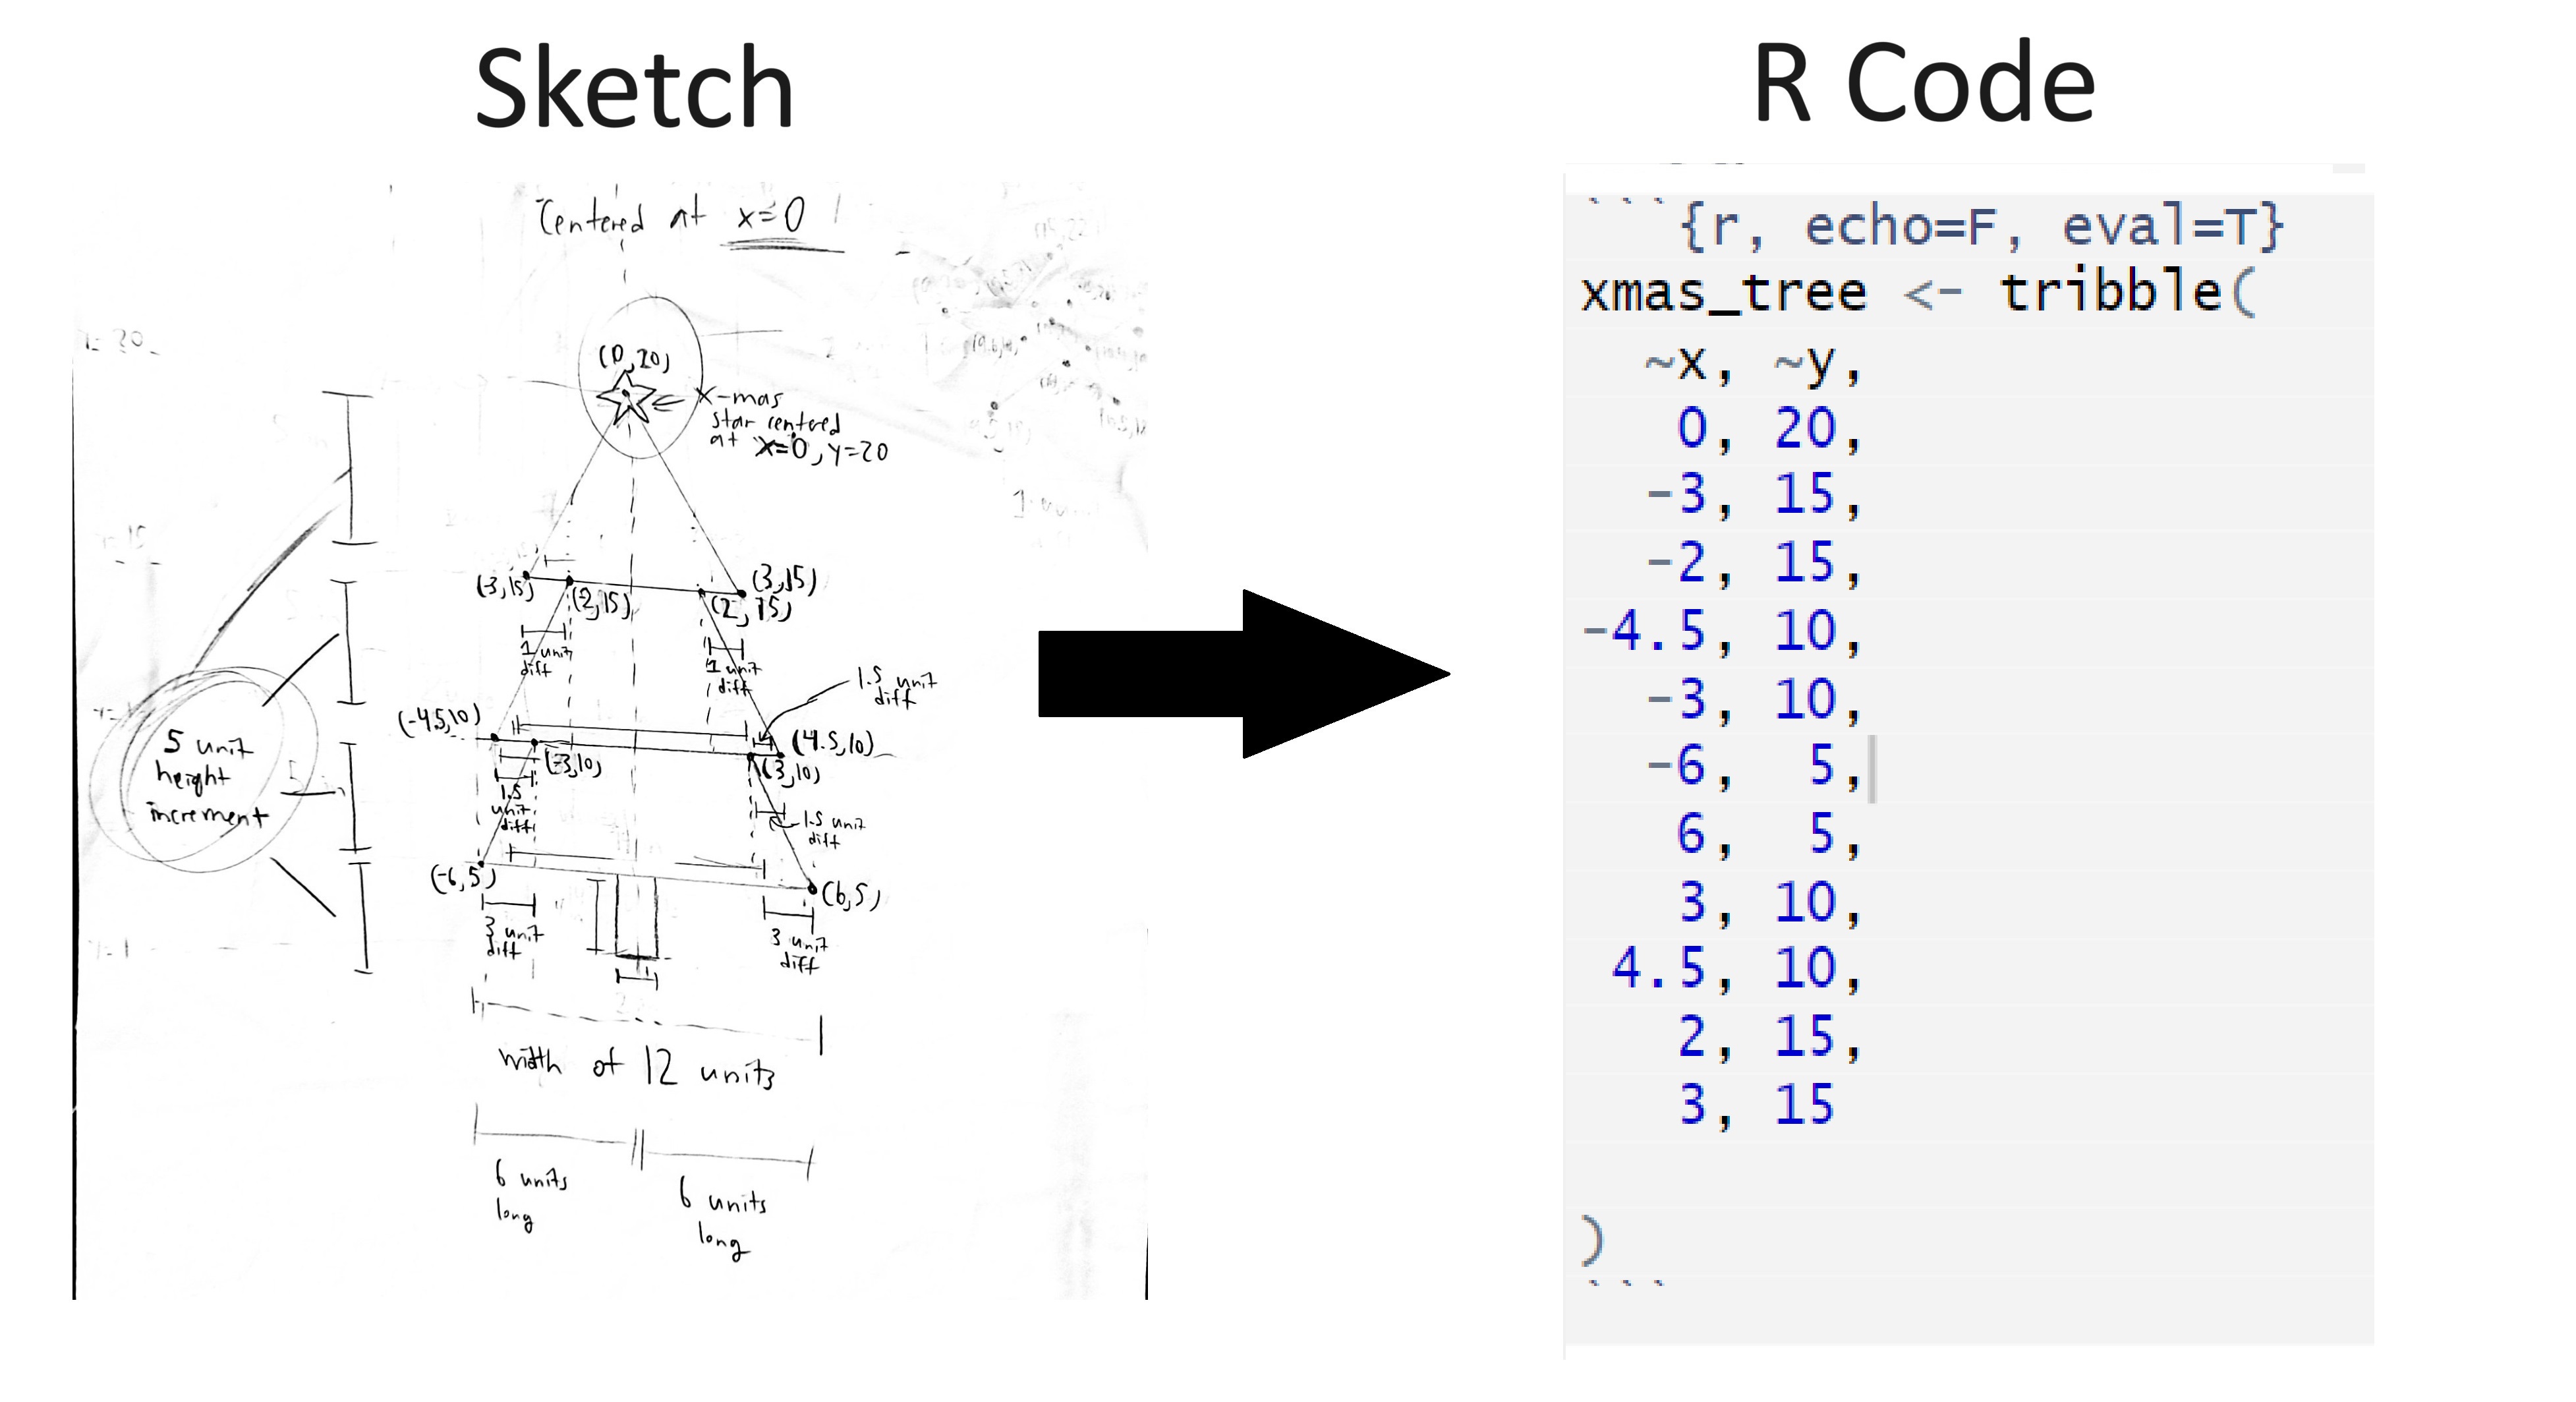 Sketch
R Code
Centered at x=0
(0,20)
X-mas
star centered
at x=0, y=20
(-3,15)
(2,15)
(2, 15)
(3,15)
1 unit
diff
1 unit
diff
1.5 unit
diff
(-4.5,10)
(-3,10)
(3,10)
(4.5,10)
5 unit
height
increment
1.5
unit
diff
1.5 unit
diff
(-6,5)
(6,5)
3 unit
diff
3 unit
diff
width of 12 units
6 units
long
6 units
long
```{r, echo=F, eval=T}
xmas_tree <- tribble(
~x, ~y,
0, 20,
-3, 15,
-2, 15,
-4.5, 10,
-3, 10,
-6, 5,
6, 5,
3, 10,
4.5, 10,
2, 15,
3, 15
)
```